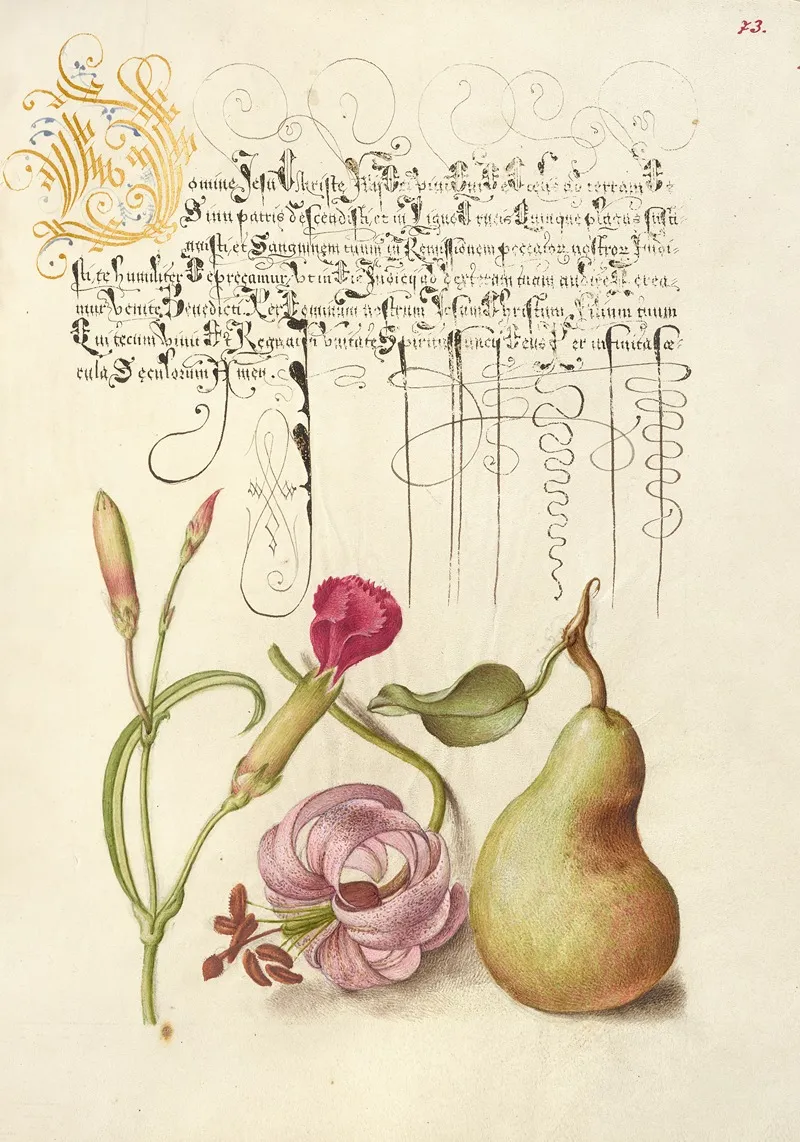 73.
Domine Jesu Christe Fili Dei vivi Qui De Coelis ad terram De
Sinu patris descendisti, et in Ligno Crucis Quinque plagas susti-
et Sanguinem tuum in Remissionem peccator. nostror.
sti, te humiliter Deprecamur, Vt in Die Judicij ad dexteram tuam
mur Venite Benedicti. Per Dominum nostrum Jesum Christum, Filium tuum
Qui tecum Vivit Et Regnat in vnitate Spiritus sancti Deus Per infinita sæ-
cula Seculorum Amen.